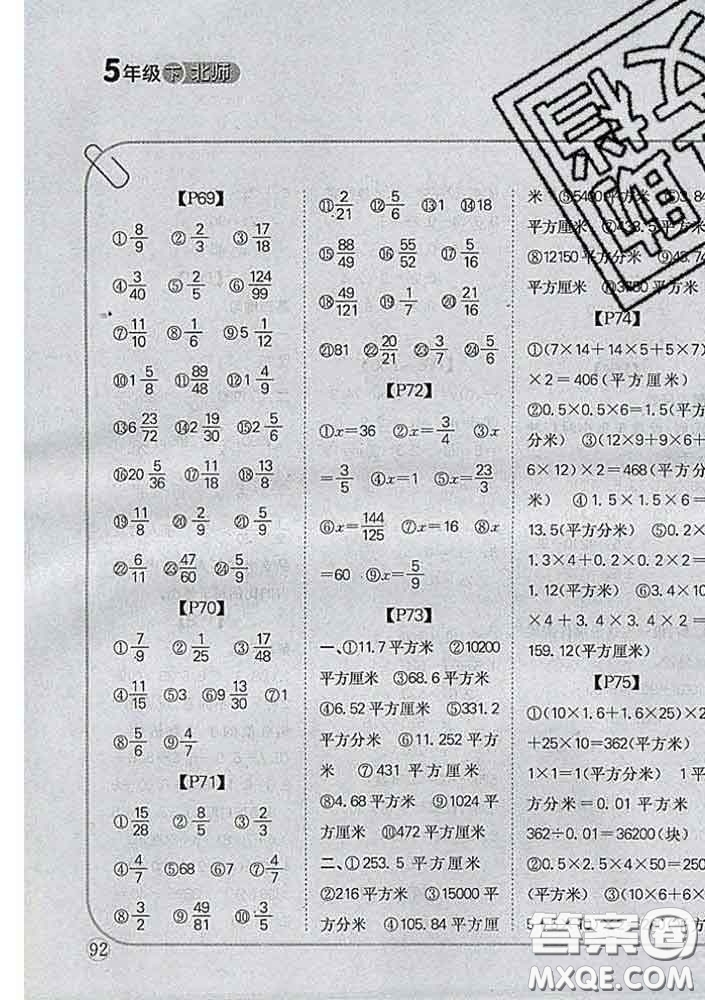 5年级 下 北师
【P69】
①8/9 ②2/3 ③17/18
④3/40 ⑤2/5 ⑥124/99
⑦11/10 ⑧1/6 ⑨5 1/12
⑩1 5/8 ⑪89/48 ⑫1 4/9
⑬6 23/72 ⑭2 19/30 ⑮2 5/6
⑯20 5/36 ⑰11/18 ⑱13/8
⑲11/8 ⑳2/9 ㉑5/9
㉒6/11 ㉓47/60 ㉔5/9
【P70】
①7/9 ②1/25 ③17/48
④11/15 ⑤3 ⑥9 13/30 ⑦1
⑧5/6 ⑨4/7
【P71】
①15/28 ②8/5 ③2/3
④4/7 ⑤68 ⑥7 ⑦4/7
⑧3/2 ⑨49/81 ⑩3/5
92
⑪2/21 ⑫5/6 ⑬1 ⑭18
⑮88/49 ⑯55/52 ⑰5/16
⑱49/121 ⑲1/7 ⑳21/16
㉑81 ㉒20/21 ㉓3/7 ㉔5/6
【P72】
①x=36 ②x=3/4 ③x
=3/5 ④x=1 ⑤x=23/3
⑥x=144/125 ⑦x=16 ⑧x
=60 ⑨x=5/9
【P73】
一、①11.7平方米 ②10200
平方厘米 ③68.6平方米
④6.52平方厘米 ⑤331.2
平方分米 ⑥11.252平方
米 ⑦431平方厘米
⑧4.68平方米 ⑨1024平
方厘米 ⑩472平方厘米
二、①253.5平方厘米
②216平方米 ③15000平
方分米 ④105.84平方厘
米 ⑤5400平方米 ⑥3.84
平方厘米 ⑦433.5平方
⑧12150平方分米 ⑨48.74
平方厘米
【P74】
①(7×14+14×5+5×7)
×2=406(平方厘米)
②0.5×0.5×6=1.5(平方
分米) ③(12×9+9×6+
6×12)×2=468(平方厘
米) ④1.5×1.5×6=
13.5(平方分米) ⑤0.2×
1.3×4+0.2×0.2×2=
1.12(平方米) ⑥3.4×10
×4+3.4×3.4×2=
159.12(平方厘米)
【P75】
①(10×1.6+1.6×25)×2
+25×10=362(平方米)
1×1=1(平方分米) 1平
方分米=0.01平方米
362÷0.01=36200(块)
②0.5×2.5×4×50=250
(平方米) ③(10×6+6×
答案圈
MXQE.COM